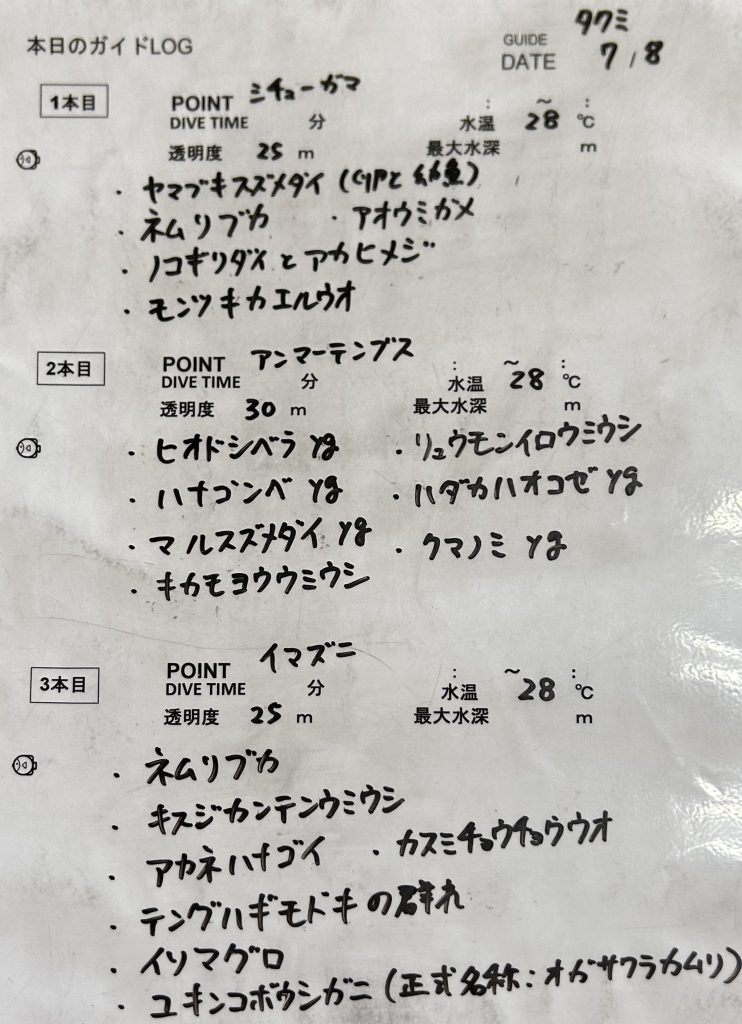 本日のガイドLOG
GUIDE タクミ
DATE 7/8
1本目 POINT ミチューガマ : ~ :
DIVE TIME 分 水温 28 ℃
透明度 25 m 最大水深 m
・ヤマブキスズメダイ (卵と幼魚)
・ネムリブカ ・アオウミガメ
・ノコギリダイとアカヒメジ
・モンツキカエルウオ
2本目 POINT アンマーテンブス : ~ :
DIVE TIME 分 水温 28 ℃
透明度 30 m 最大水深 m
・ヒオドシベラ yg ・リュウモンイロウミウシ
・ハナゴンベ yg ・ハダカハオコゼ yg
・マルスズメダイ yg ・クマノミ yg
・キカモヨウウミウシ
3本目 POINT イマズニ : ~ :
DIVE TIME 分 水温 28 ℃
透明度 25 m 最大水深 m
・ネムリブカ
・キスジカンテンウミウシ
・アカネハナゴイ ・カスミチョウチョウウオ
・テングハギモドキの群れ
・イソマグロ
・ユキンコボウシガニ (正式名称:オガサワラカムリ)